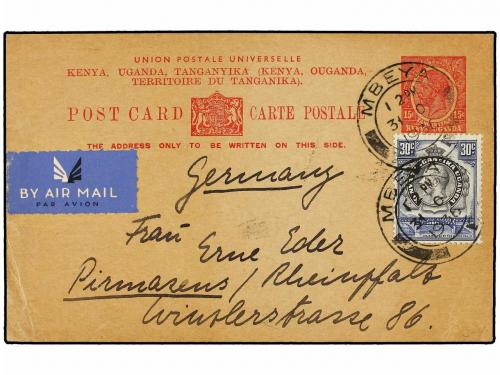 UNION POSTALE UNIVERSELLE
KENYA, UGANDA, TANGANYIKA (KENYA, OUGANDA,
TERRITOIRE DU TANGANIKA).
POST CARD CARTE POSTALE
THE ADDRESS ONLY TO BE WRITTEN ON THIS SIDE.
15c 15c
MBEYA
30c 30c
MBEYA
BY AIR MAIL
PAR AVION
Germany
Frau Erne Eder
Pirmasens / Rheinpfalz
Winzlerstrasse 86.